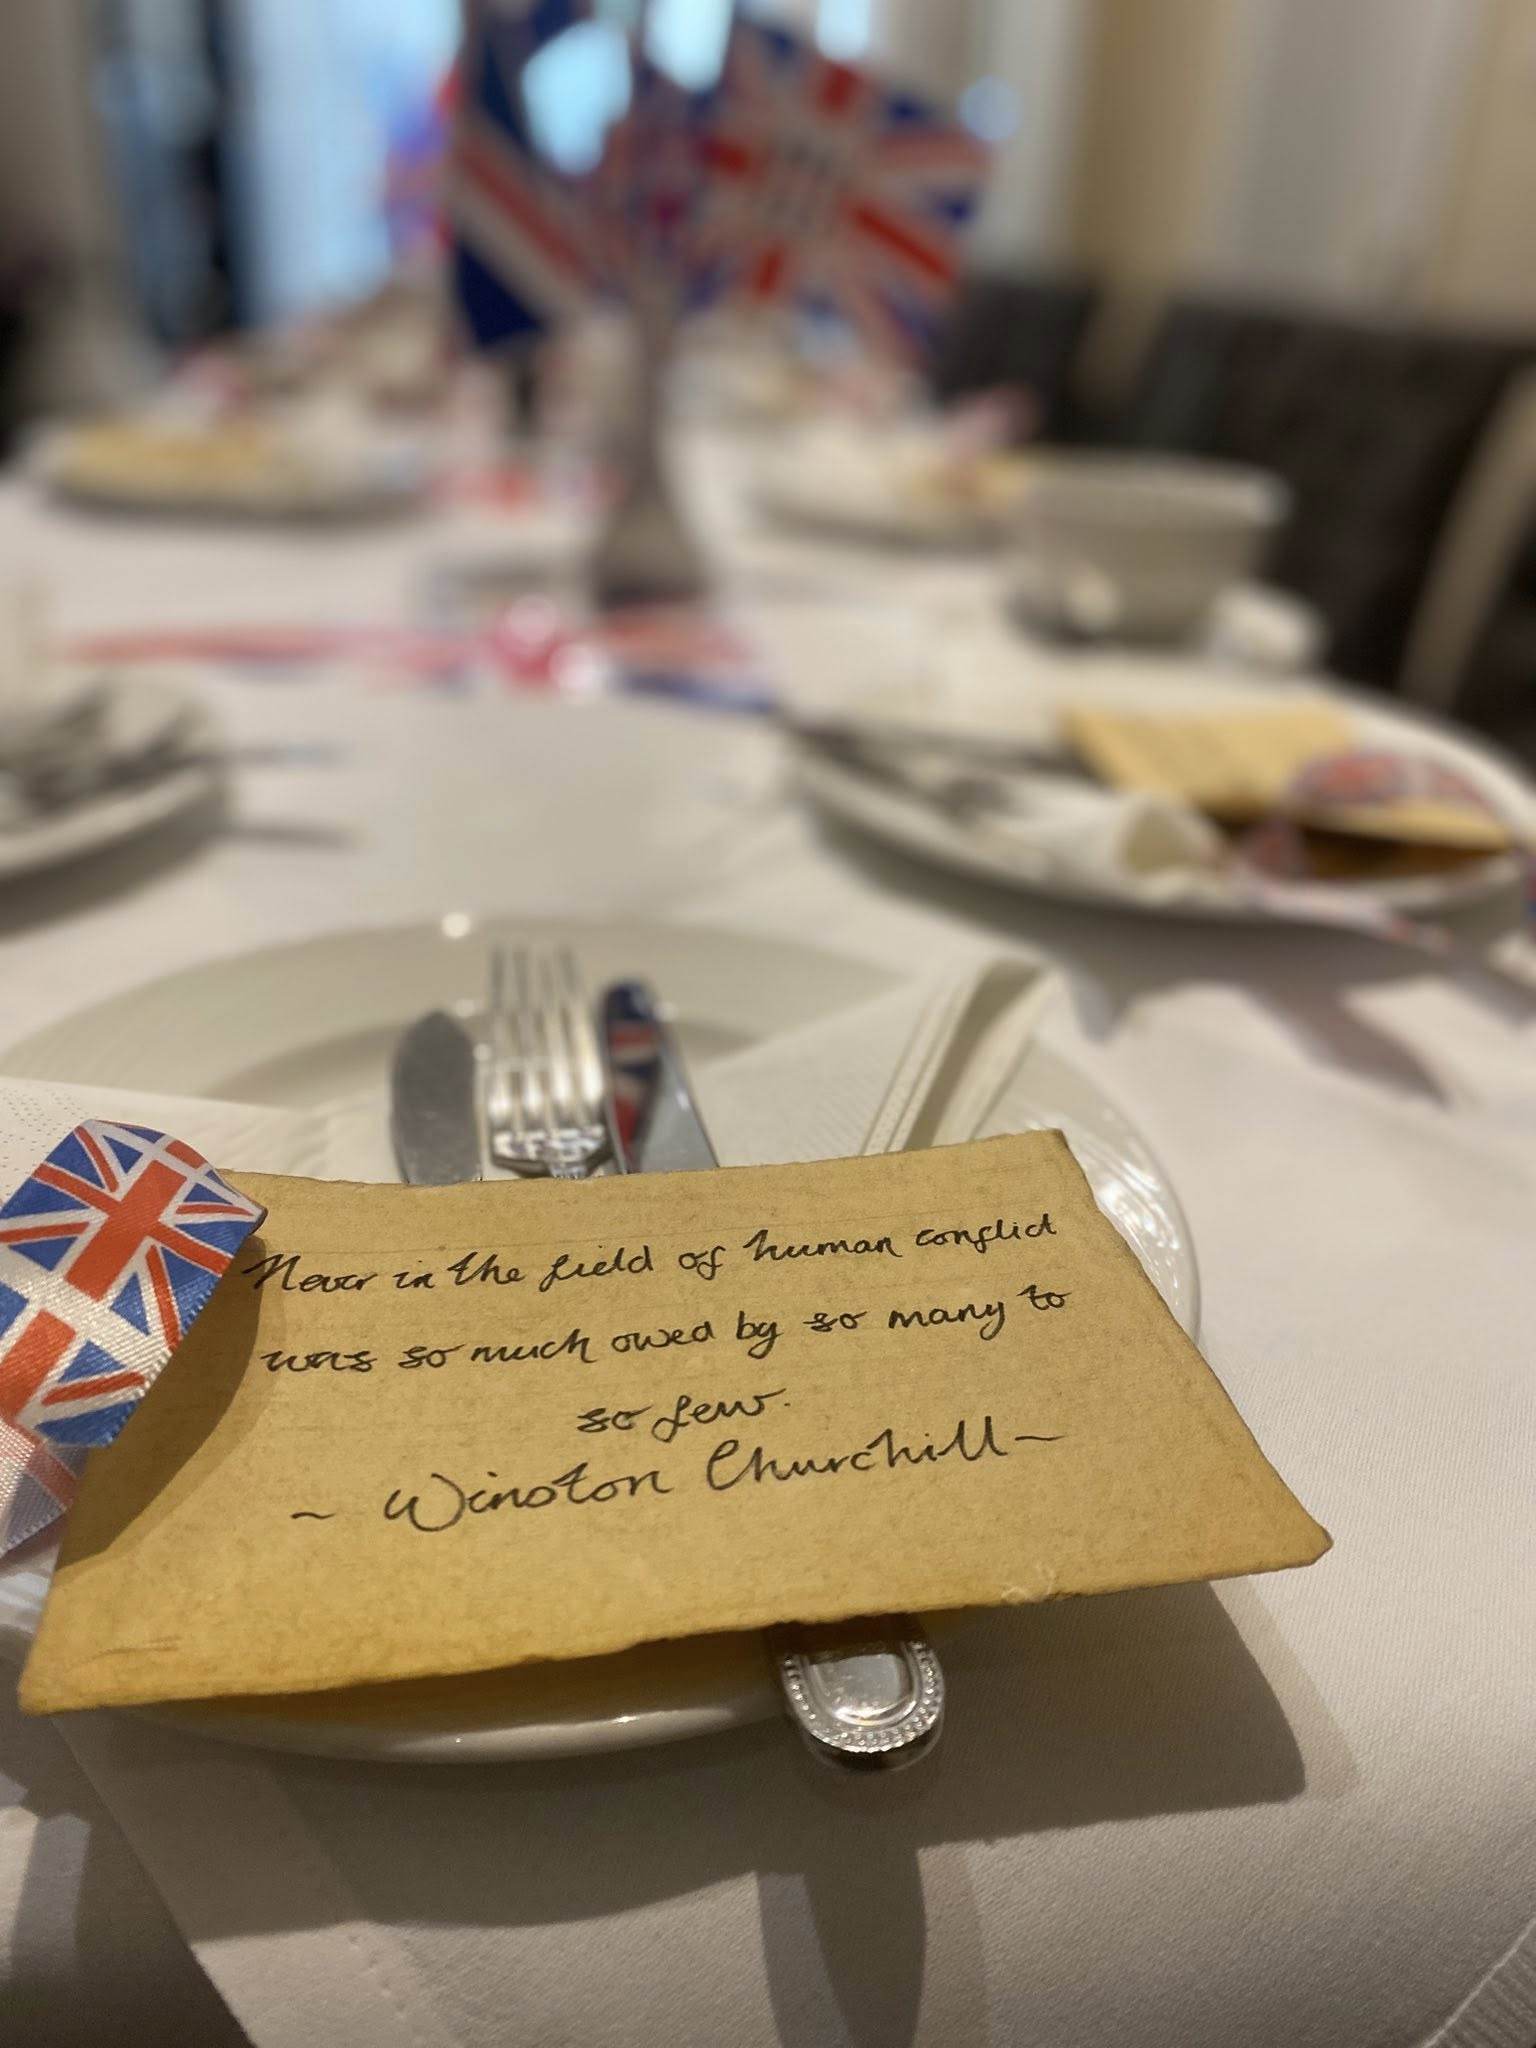 Never in the field of human conflict
was so much owed by so many to
so few.
~ Winston Churchill ~